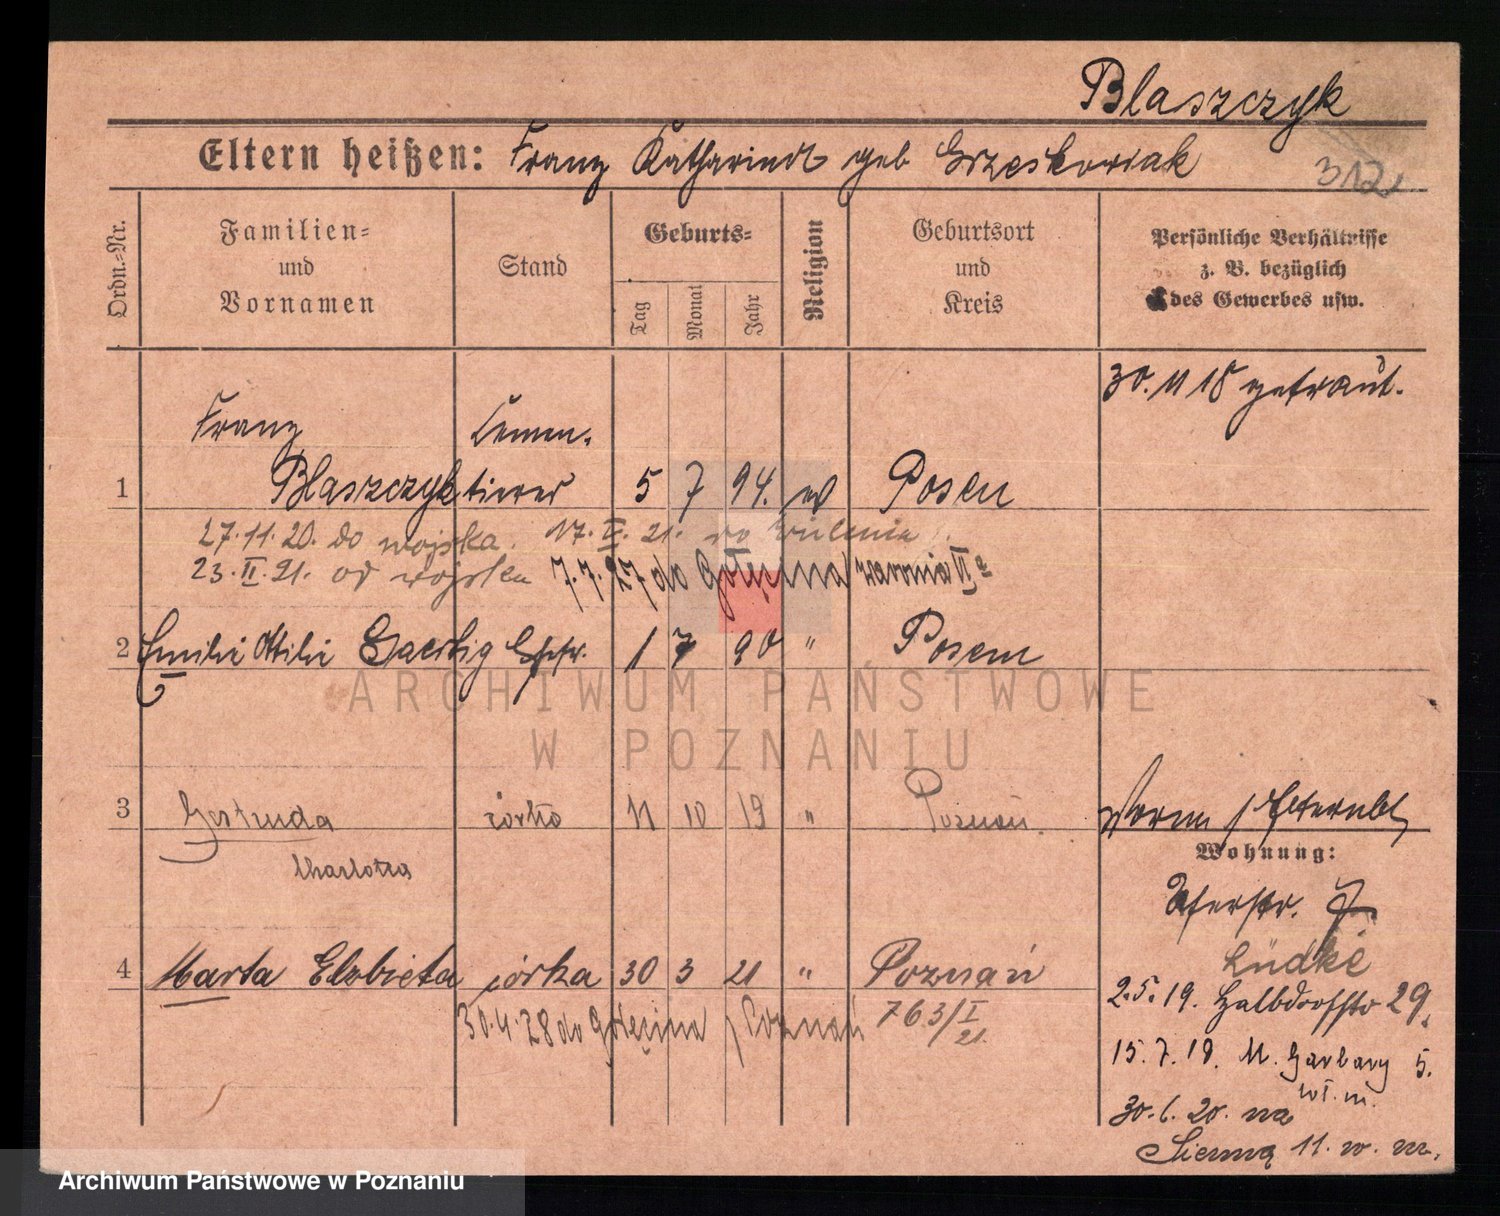 Blaszczyk
Eltern heißen: Franz Katharina geb Grzeskowiak
312
Ordn.-Nr.
Familien-
und
Vornamen
Stand
Geburts-
Tag
Monat
Jahr
Religion
Geburtsort
und
Kreis
Persönliche Verhältnisse
z. B. bezüglich
des Gewerbes usw.
30. 11 18 getraut.
Franz
1 Blaszczyk 5 7 94. Posen
27.11.20. do wojska. 17. V. 21. do Wilenia
23. II. 21. od wojska 7.7.27 do Golęcina
2 Emilie Ottilie Gaertig Ehefr. 1 7 90 " Posen
3 Gertruda córka 11 10 19 " Poznań.
Charlotta
4 Marta Elzbieta córka 30 3 21 " Poznań
30.4.28 do Golęcina / Poznań 763/I
21.
Wohnung:
Uferstr. 7
Lüdke
2.5.19. Halbdorfstr 29.
15.7.19. M. Garbary 5.
w I. m.
30.6.20. na
Sienną 11. w. m.
ARCHIWUM PAŃSTWOWE
W POZNANIU
Archiwum Państwowe w Poznaniu